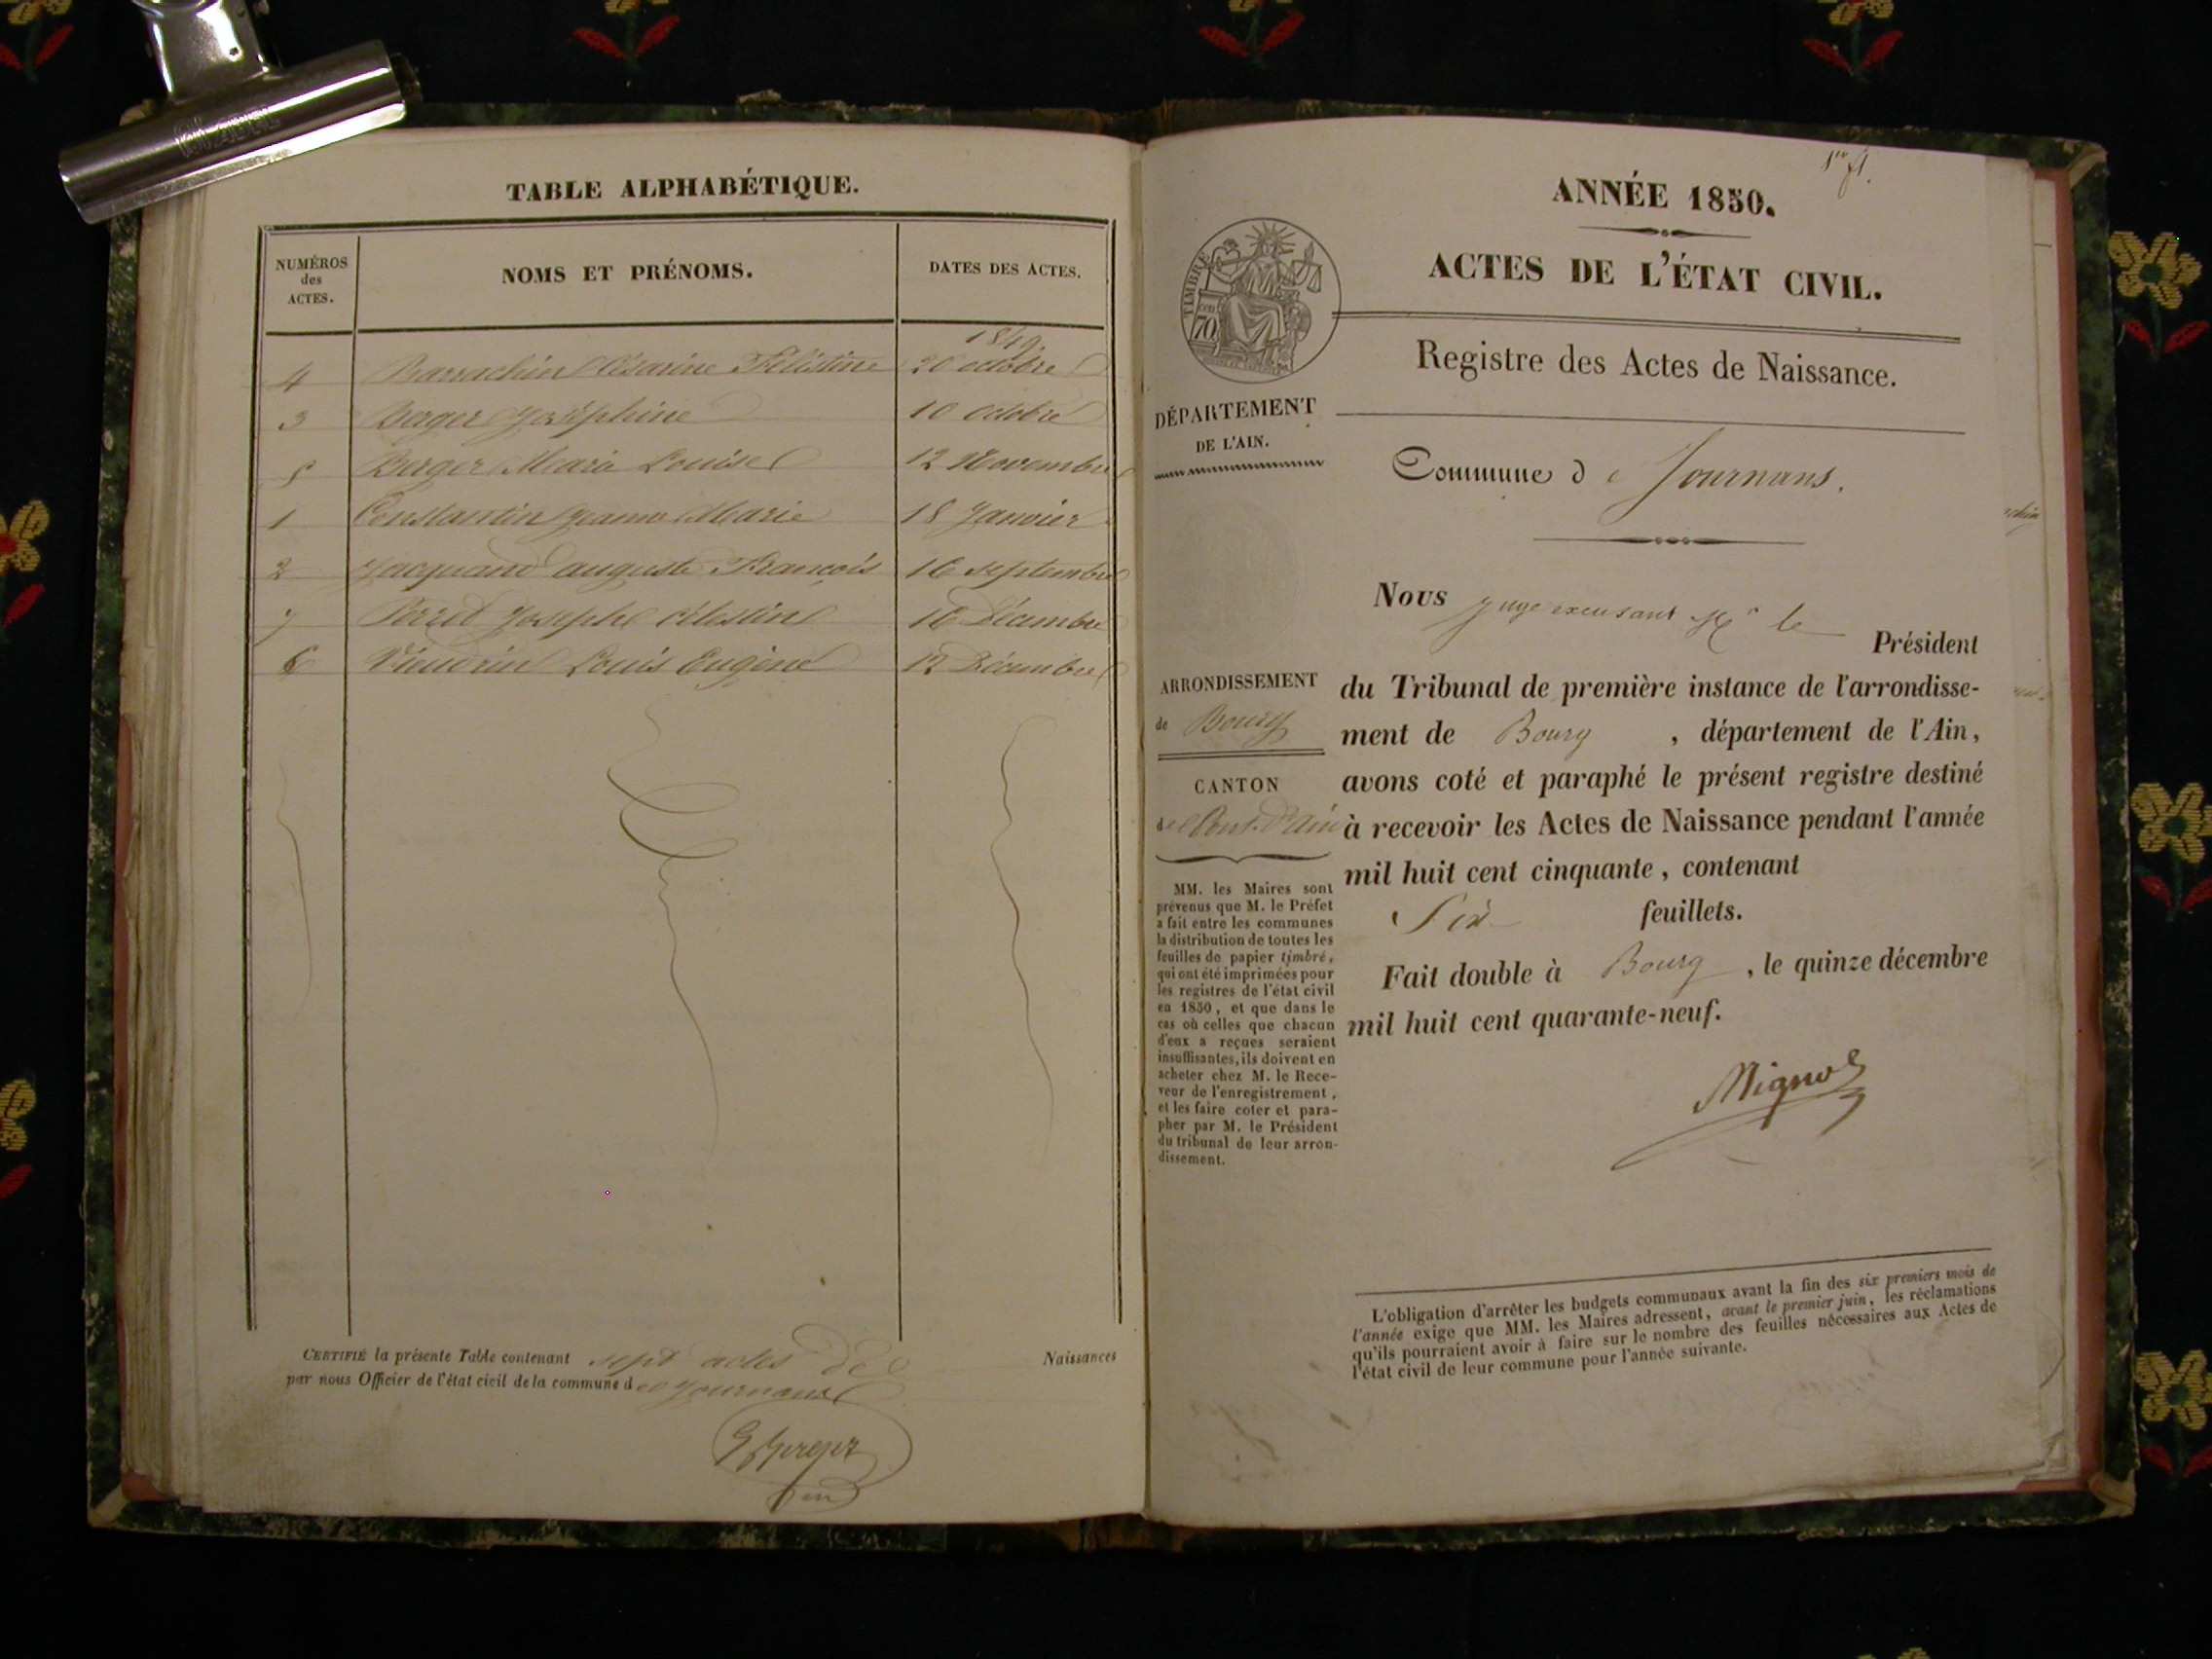 TABLE ALPHABÉTIQUE.
NUMÉROS
des
ACTES.
NOMS ET PRÉNOMS.
DATES DES ACTES.
1849.
4 Barrachin Césarine Félistine 20 octobre
3 Berger Joséphine 10 octobre
5 Berger Marie Louise 12 Novembre
1 Constantin Jeanne Marie 18 Janvier
2 Jacquand auguste François 16 septembre
7 Perret Joseph célestin 16 Décembre
6 Louis Eugène 12 Décembre
CERTIFIÉ la présente Table contenant sept actes de Naissances
par nous Officier de l'état civil de la commune de Journans
1er f.
ANNÉE 1850.
ACTES DE L'ÉTAT CIVIL.
TIMBRE
70
Registre des Actes de Naissance.
DÉPARTEMENT
DE L'AIN.
Commune de Journans.
Nous juge excusant Mr le Président
du Tribunal de première instance de l'arrondisse-
ment de Bourg , département de l'Ain,
avons coté et paraphé le présent registre destiné
à recevoir les Actes de Naissance pendant l'année
mil huit cent cinquante, contenant
Six feuillets.
Fait double à Bourg , le quinze décembre
mil huit cent quarante-neuf.
ARRONDISSEMENT
de Bourg
CANTON
de Pont-d'Ain
MM. les Maires sont
prévenus que M. le Préfet
a fait entre les communes
la distribution de toutes les
feuilles de papier timbré,
qui ont été imprimées pour
les registres de l'état civil
en 1850, et que dans le
cas où celles que chacun
d'eux a reçues seraient
insuffisantes, ils doivent en
acheter chez M. le Rece-
veur de l'enregistrement,
et les faire coter et para-
pher par M. le Président
du tribunal de leur arron-
dissement.
L'obligation d'arrêter les budgets communaux avant la fin des six premiers mois de
l'année exige que MM. les Maires adressent, avant le premier juin, les réclamations
qu'ils pourraient avoir à faire sur le nombre des feuilles nécessaires aux Actes de
l'état civil de leur commune pour l'année suivante.